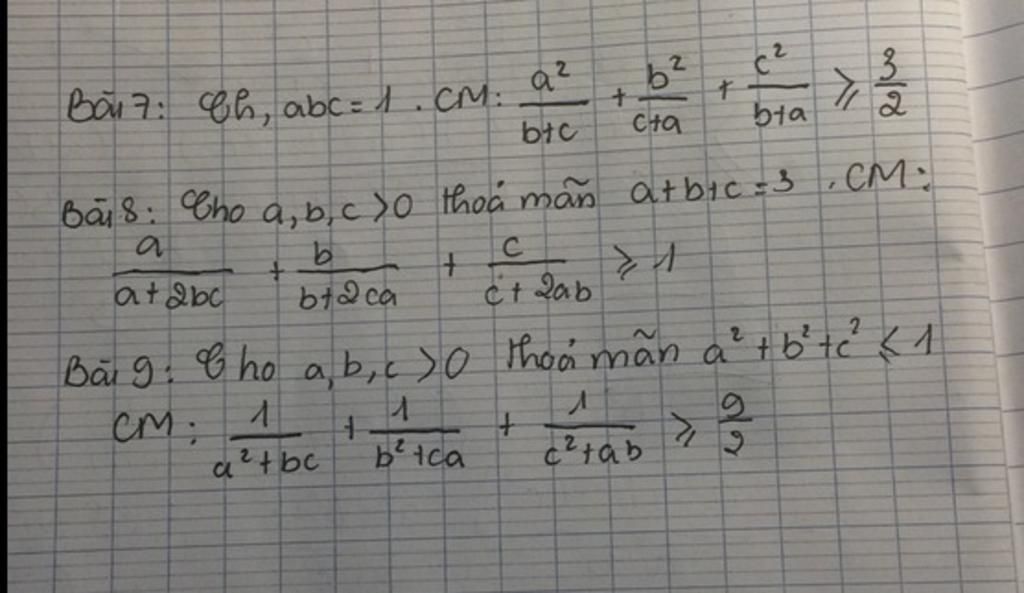 Bài 7: Ch, abc = 1. CM: a²/(b+c) + b²/(c+a) + c²/(b+a) ≥ 3/2
Bài 8: Cho a, b, c > 0 thoả mãn a+b+c = 3. CM:
a/(a+2bc) + b/(b+2ca) + c/(c+2ab) ≥ 1
Bài 9: Cho a, b, c > 0 thoả mãn a² + b² + c² ≤ 1
CM: 1/(a²+bc) + 1/(b²+ca) + 1/(c²+ab) ≥ 9/2